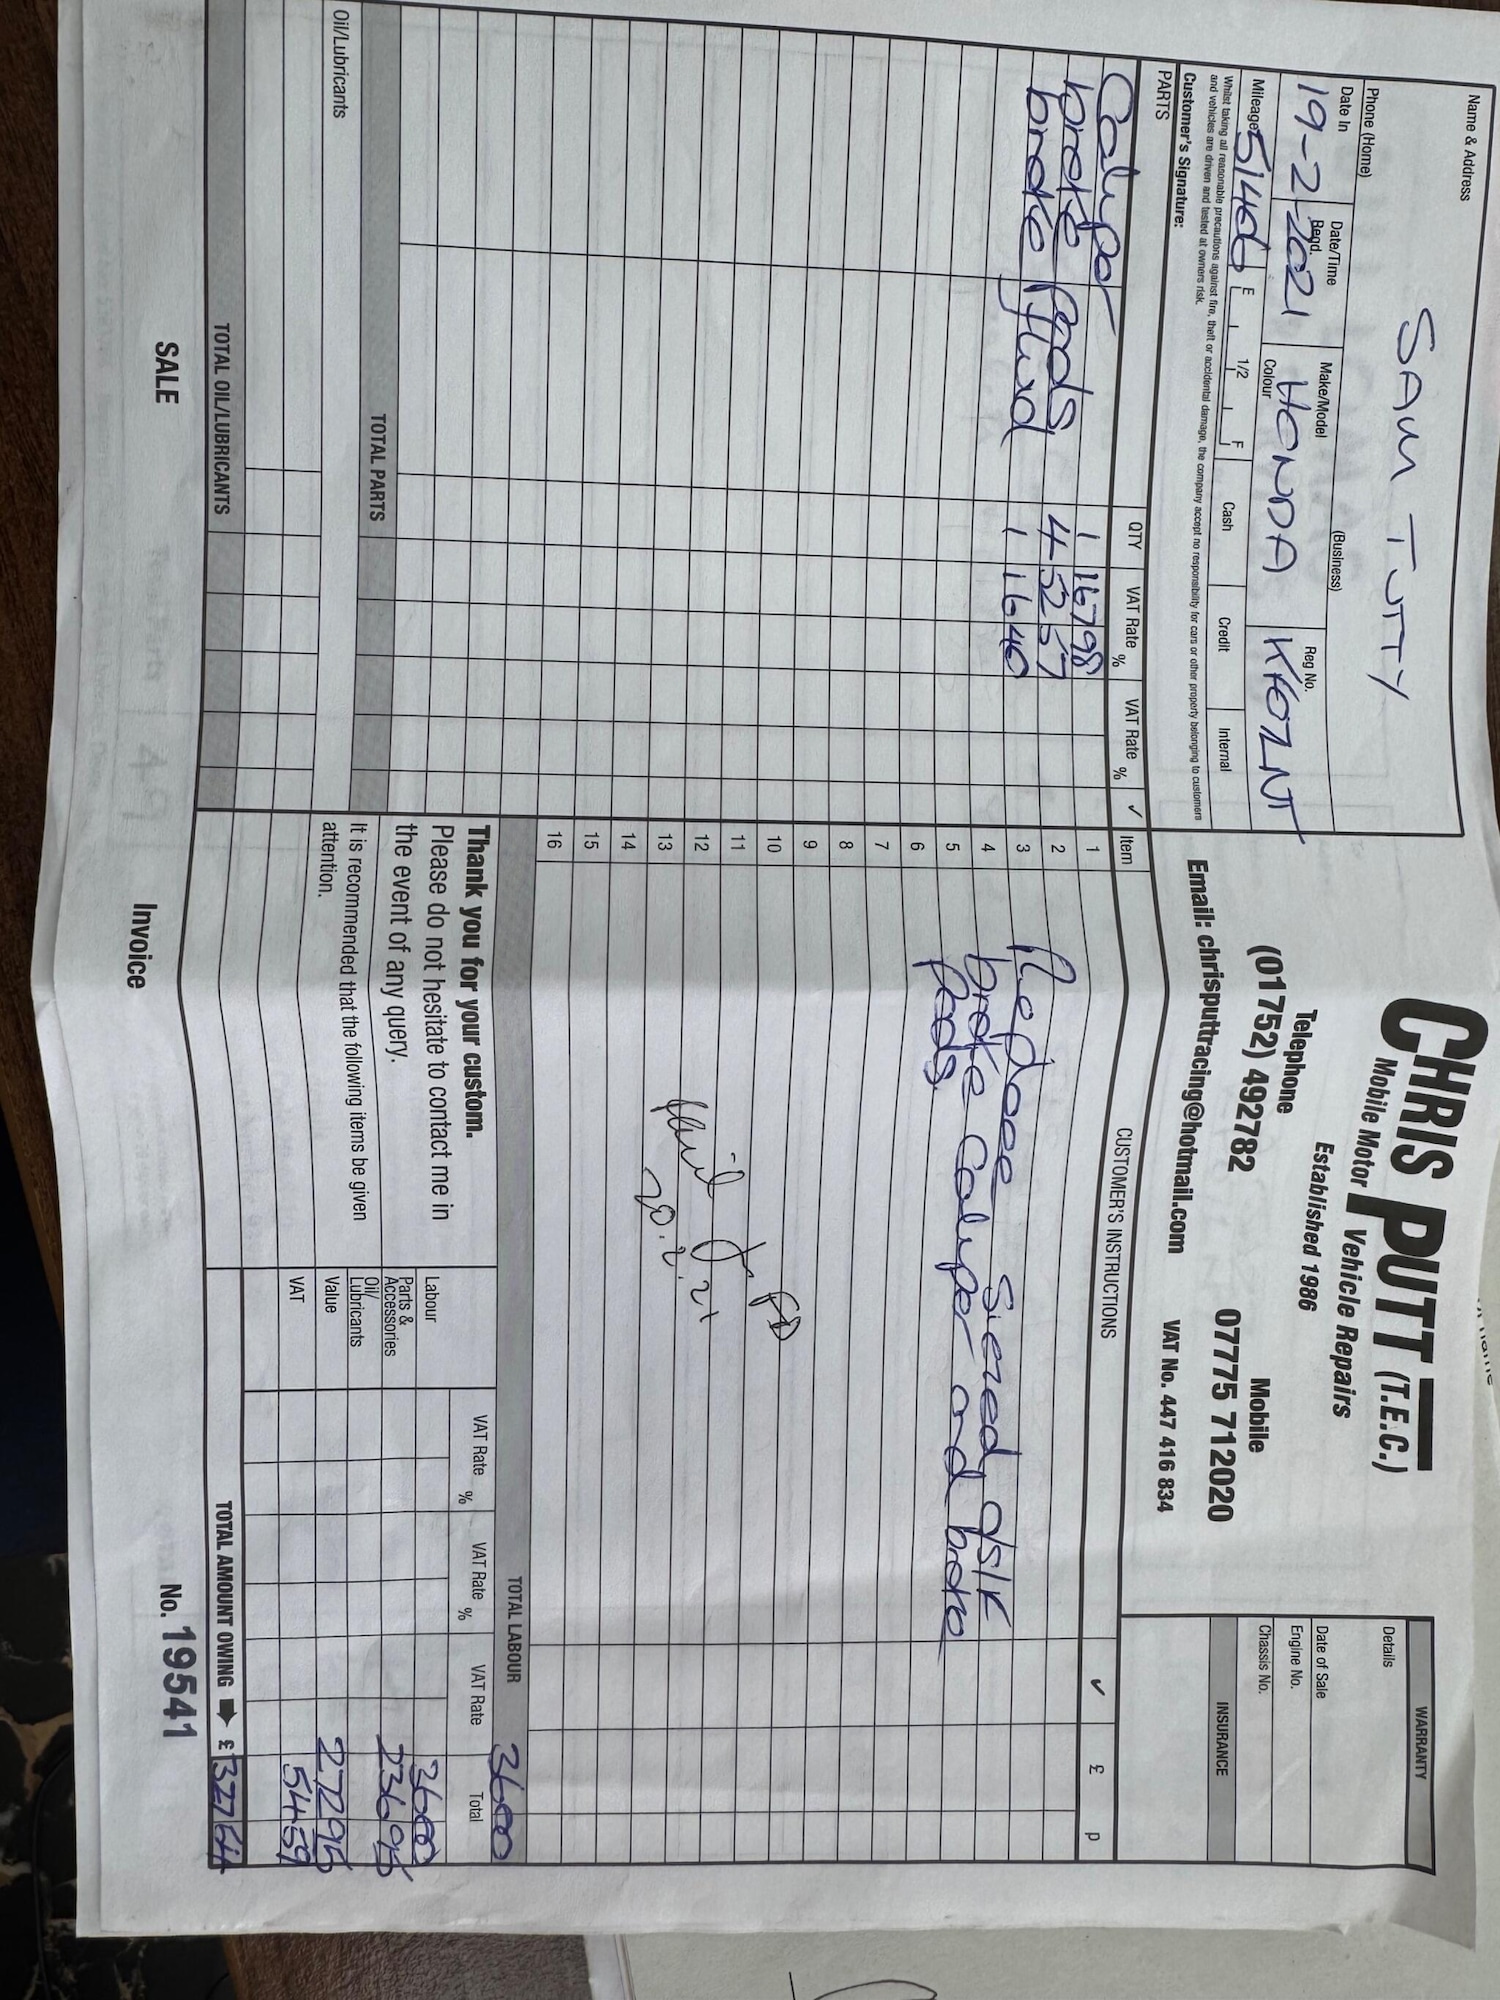 Name & Address
SAM TUTTY
Phone (Home)
(Business)
Date In
19-2-2021
Date/Time Reqd.
Make/Model
HONDA
Colour
Reg No.
KF07LNT
Mileage
51466
E 1/2 F
Cash
Credit
Internal
Whilst taking all reasonable precautions against fire, theft or accidental damage, the company accept no responsibility for cars or other property belonging to customers
and vehicles are driven and tested at owners risk.
Customer's Signature:
CHRIS PUTT (T.E.C.)
Mobile Motor Vehicle Repairs
Established 1986
Telephone
(01752) 492782
Mobile
07775 712020
Email: chrisputtracing@hotmail.com
VAT No. 447 416 834
WARRANTY
Details
Date of Sale
Engine No.
Chassis No.
INSURANCE
PARTS
QTY
VAT Rate %
VAT Rate %
✓
Caliper 1 167 98
brake pads 4 52 57
brake fluid 1 16 40
TOTAL PARTS
Oil/Lubricants
TOTAL OIL/LUBRICANTS
Item
CUSTOMER'S INSTRUCTIONS
✓ £ p
1
2
3
4
5
6
7
8
9
10
11
12
13
14
15
16
Replace siezed os/r
brake caliper and brake
pads
20.2.21
TOTAL LABOUR 36 00
Thank you for your custom.
Please do not hesitate to contact me in
the event of any query.
It is recommended that the following items be given
attention.
VAT Rate %
VAT Rate %
VAT Rate
Total
Labour 36 00
Parts & Accessories 236 95
Oil/ Lubricants
Value 272 95
VAT 54 59
TOTAL AMOUNT OWING £ 327 54
SALE
Invoice
No. 19541